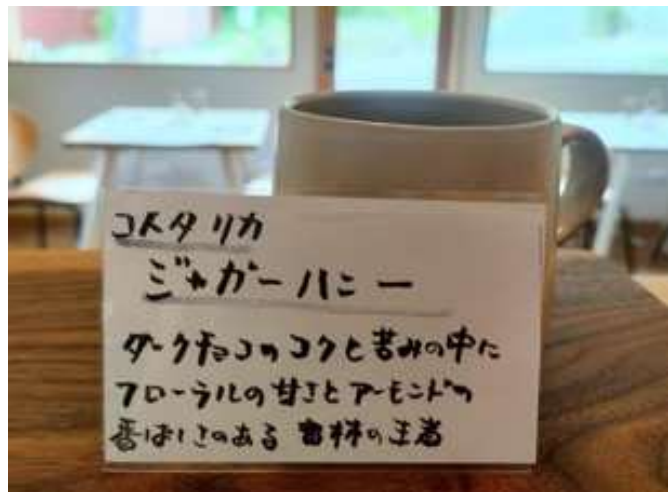 コスタリカ
ジャガーハニー
ダークチョコのコクと苦みの中に
フローラルの甘さとアーモンドの
香ばしさのある の王者